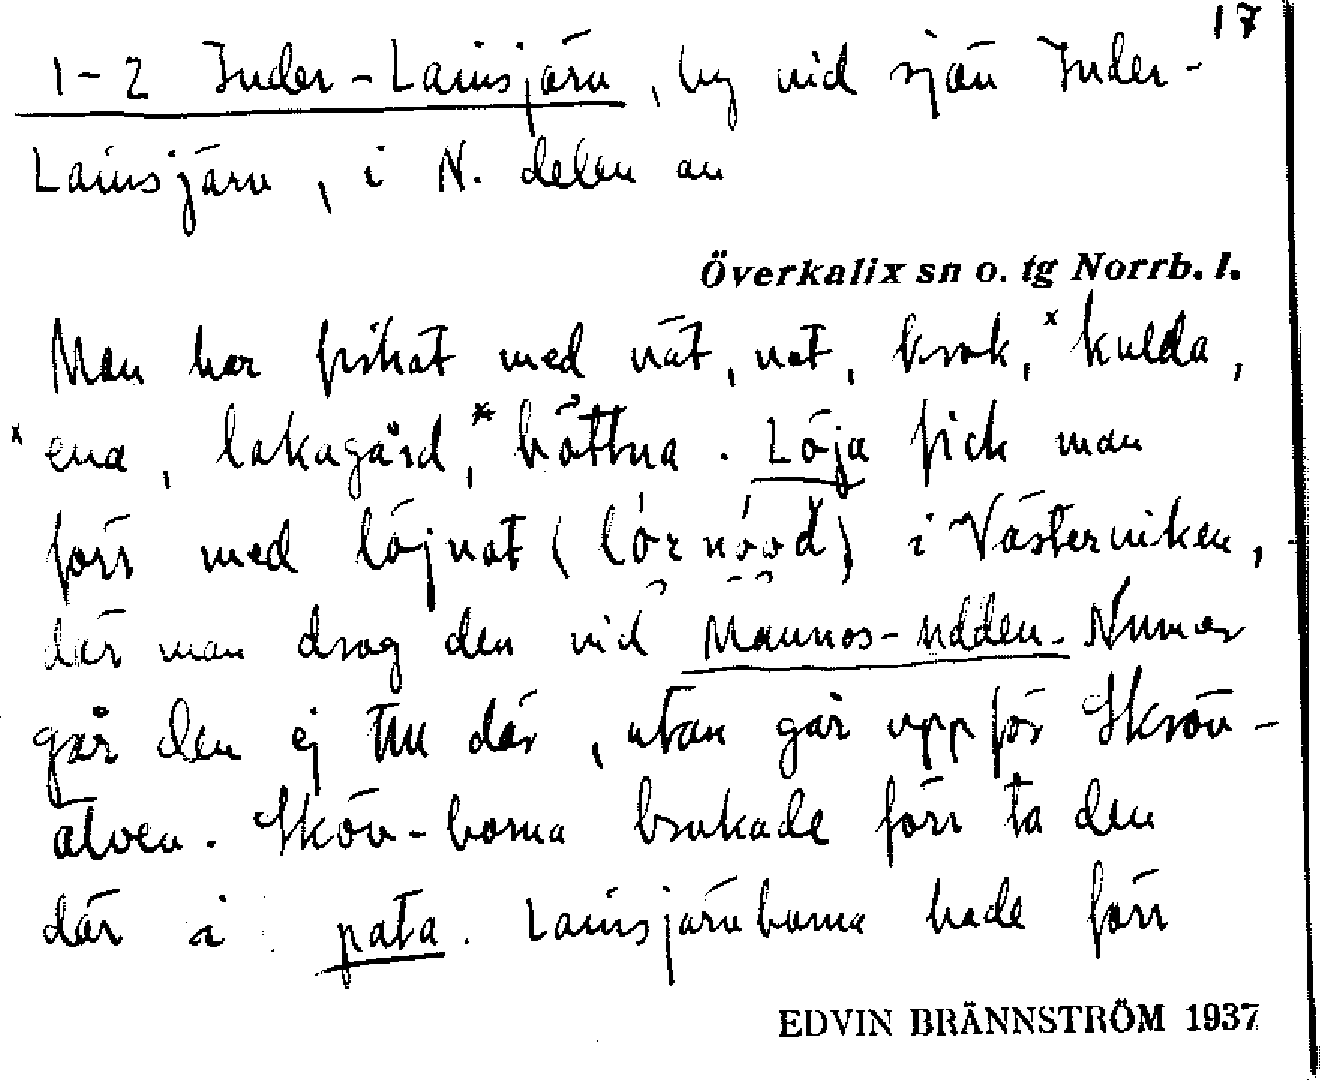 17
1-2 Inder-Lainsjärv, by vid sjön Inder-
Lainsjärv, i N. delen av
Överkalix sn o. tg Norrb. l.
Man har fiskat med nät, not, krok, ˣkulda,
ˣena, lakagård, ˣhöttna. Löja fick man
förr med löjnot ( ) i Västerviken,
där man drog den vid Mannos-udden. Numer
går den ej till där, utan går uppför Skröv-
älven. Sköv-borna brukade förr ta den
där i pata. Lainsjärvborna hade förr
EDVIN BRÄNNSTRÖM 1937